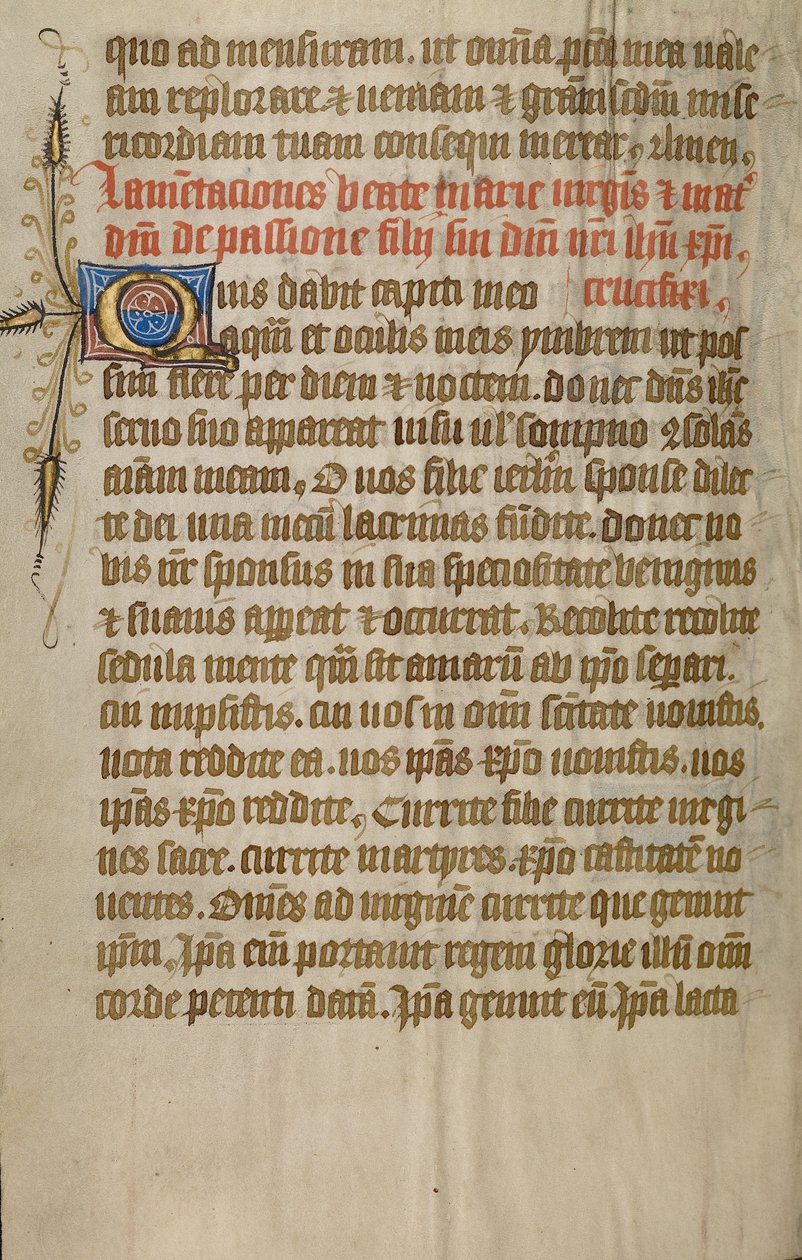 quo ad mensuram. ut om̄ia pctā mea uale
am replorare ⁊ ueniam ⁊ grām scdm̄ mise
ricordiam tuam consequi merear, Amen,
Lamētaciones beate marie uirgīs ⁊ mat᷑
dnī de passione filij sui dnī nrī ihū xpī,
Quis dabit capiti meo crucifixi,
aquā et oculis meis ymbrem ut pos
sim flere per diem ⁊ noctem. donec dn̄s ihc̄
seruo suo appareat uisu ul᷑ sompno ꝯsolās
aīam meam, O uos filie ierlm̄ sponse dilec
te dei una mecū lacrimas fūdite. donec no
bis nr̄ sponsus in sua speciositate benignus
⁊ suauis appeat ⁊ occurrat. Recolite recolite
sedula mente quā sit amarū ab ip̄o separi.
cui nupsistis. cui uos in om̄i scītate nouistis.
uota reddite ea. uos ip̄as xp̄o nouistis. uos
ip̄as xp̄o reddite, Currite filie currite uirgi
nes sacre. currite martyres. xp̄o castitatē no
uentes. Om̄es ad uirginē currite que genuit
ip̄m, Ip̄a eīm portauit regem glorie illū om̄i
corde petenti datā. Ip̄a genuit eū Ip̄a lacta